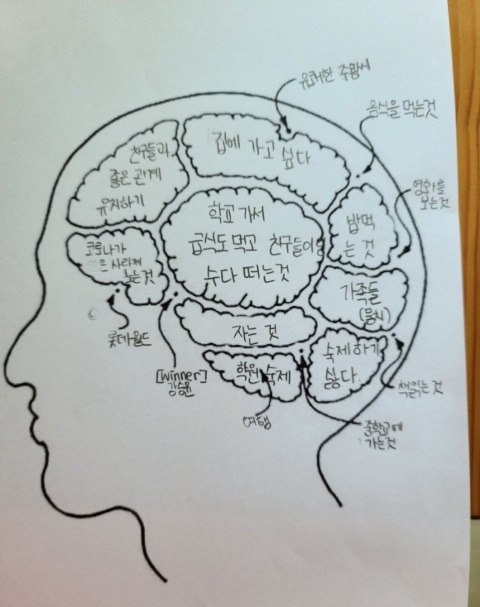 유쾌한
음식을 먹는것
친구들과
좋은 관계
유지하기
집에 가고 싶다
영화를
보는것
학교 가서
급식도 먹고 친구들이랑
수다 떠는것
밥먹
는 것
코로나가
사라져
노는것
가족들
자는 것
숙제하기
싫다.
롯데월드
[winner]
강승윤
학원 숙제
책읽는것
여행
중학교에
가는것